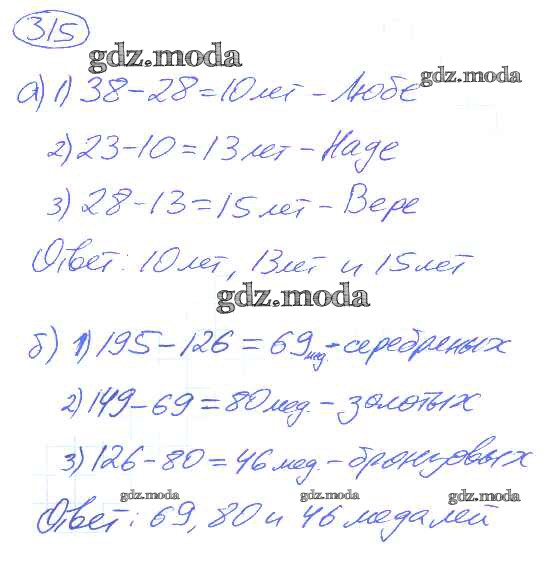 315
gdz.moda
gdz.moda
а) 1) 38-28=10 лет - Любе
2) 23-10=13 лет - Наде
3) 28-13=15 лет - Вере
Ответ: 10 лет, 13 лет и 15 лет
gdz.moda
б) 1) 195-126=69 мед. - серебреных
2) 149-69=80 мед. - золотых
3) 126-80=46 мед. - бронзовых
gdz.moda gdz.moda gdz.moda
Ответ: 69, 80 и 46 медалей